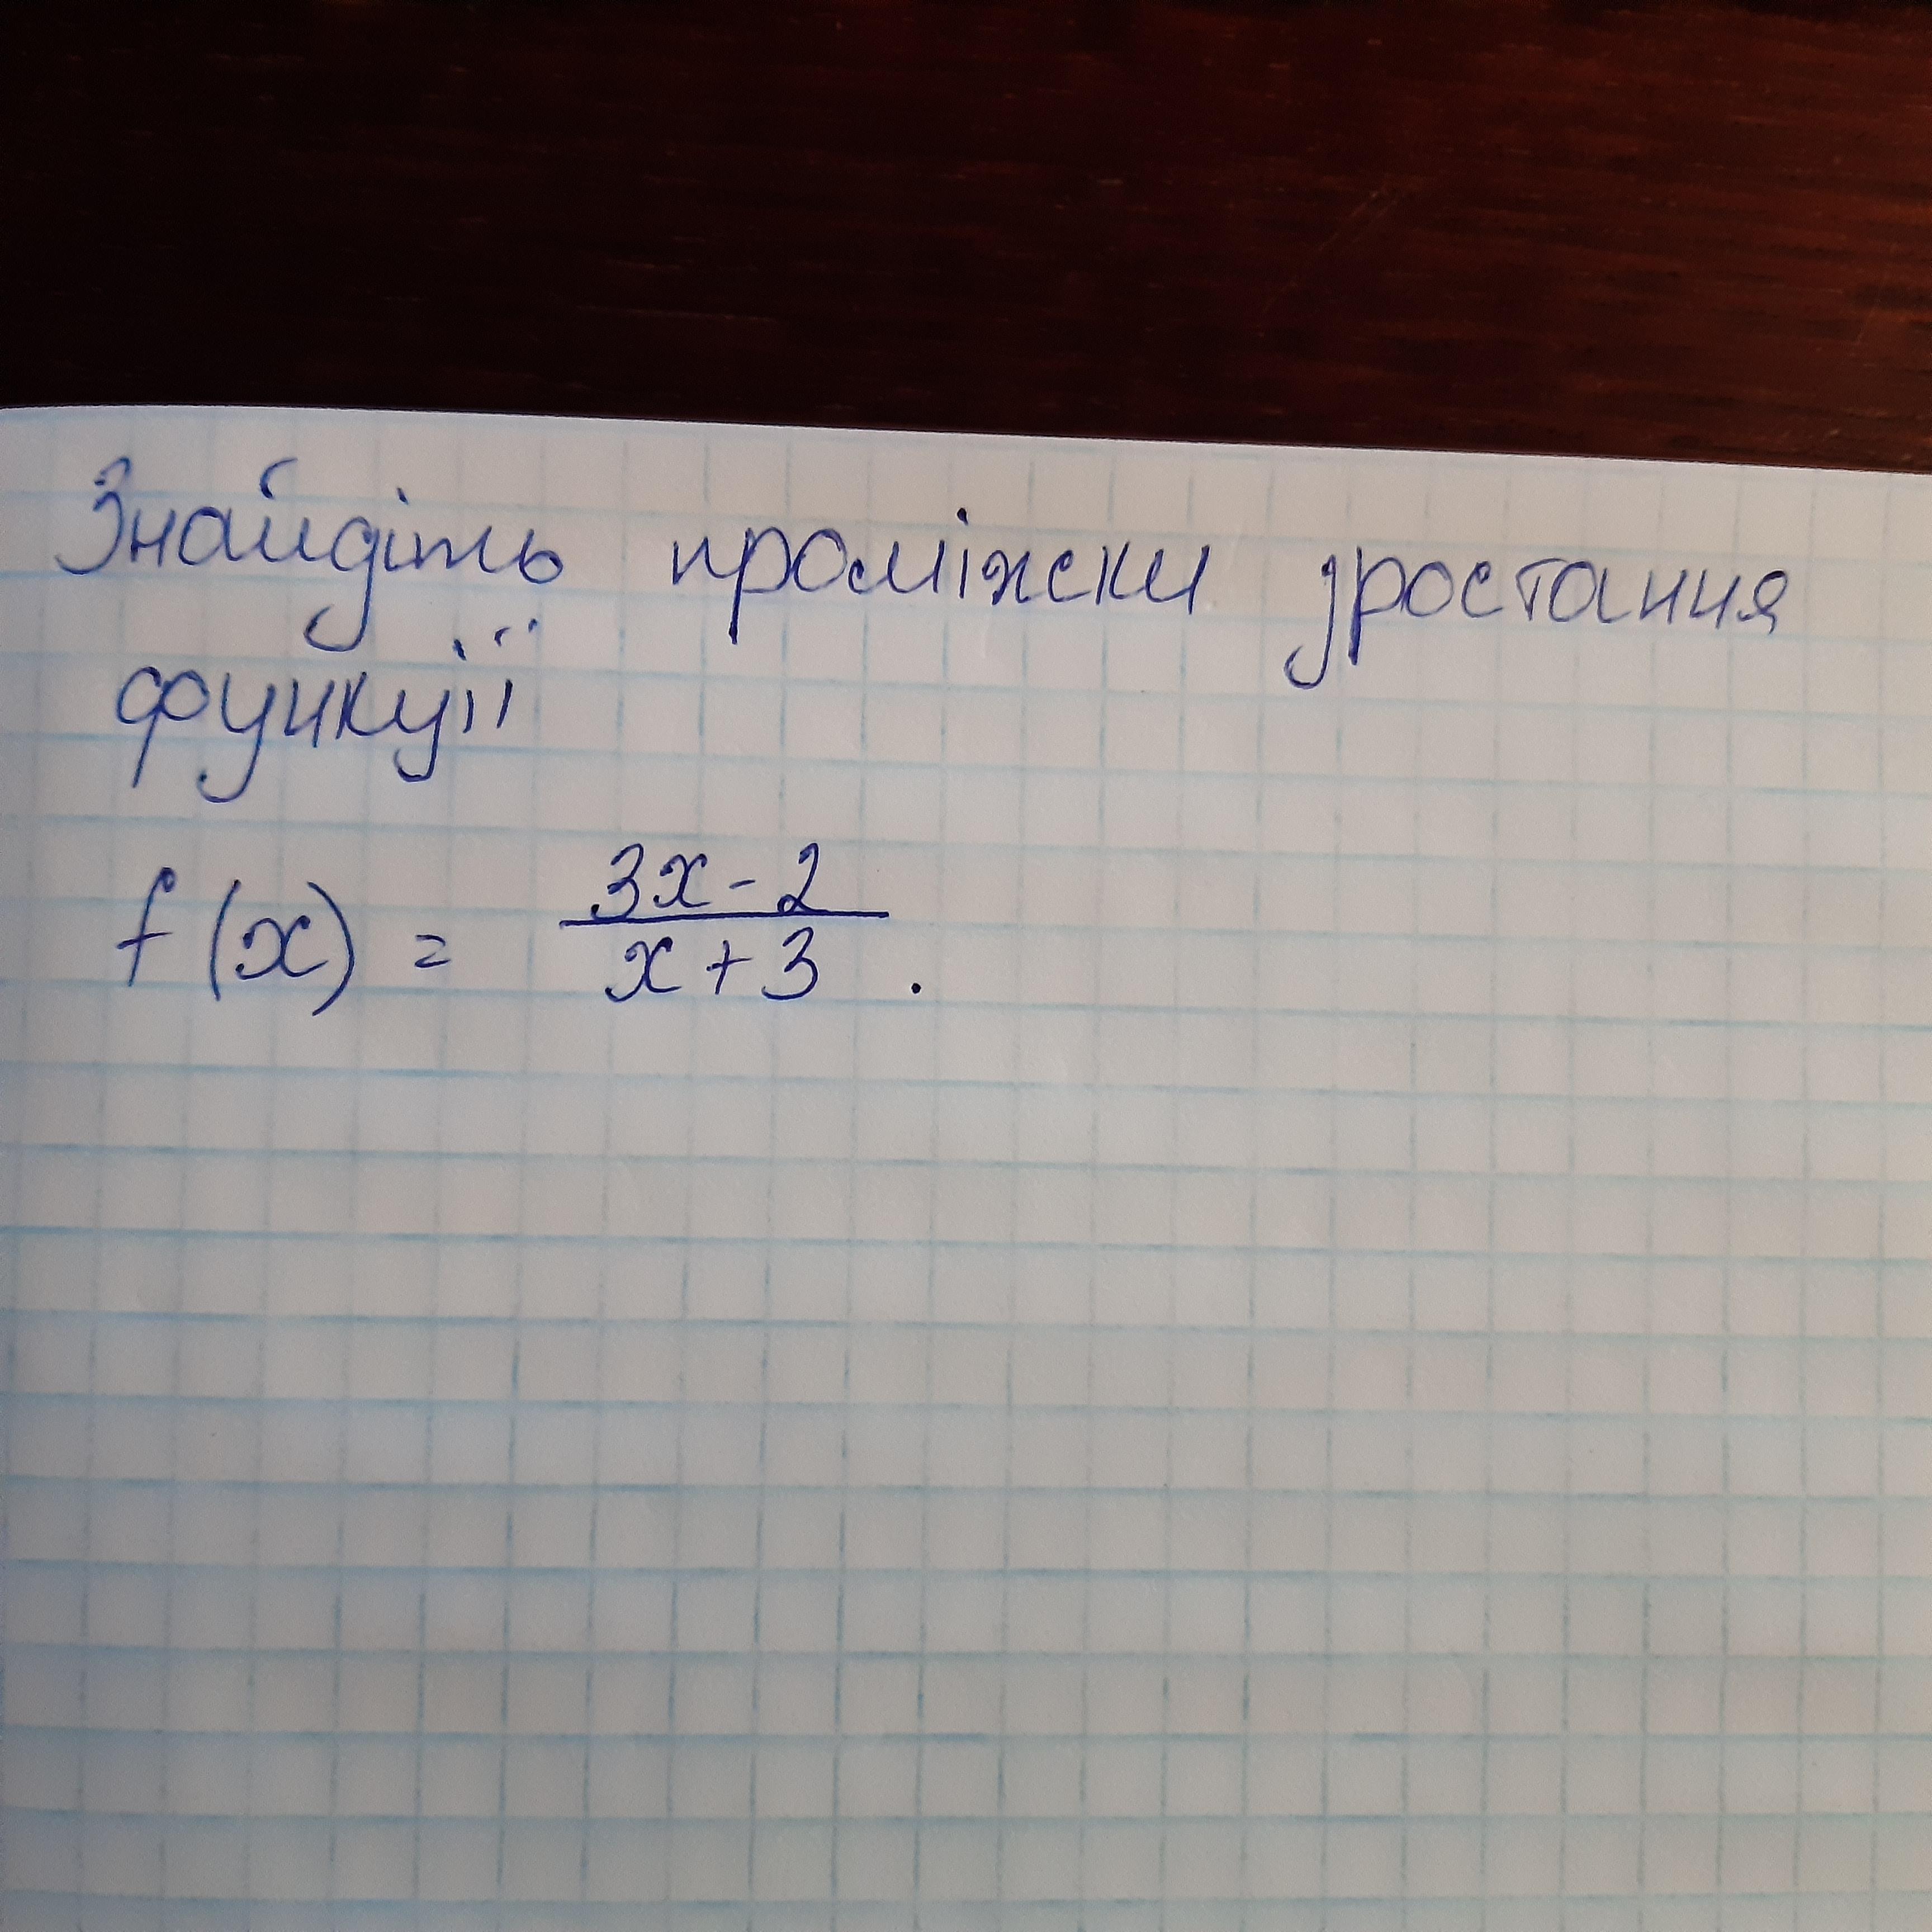 Знайдіть проміжки зростання
функції
f(x) = \frac{3x-2}{x+3}.